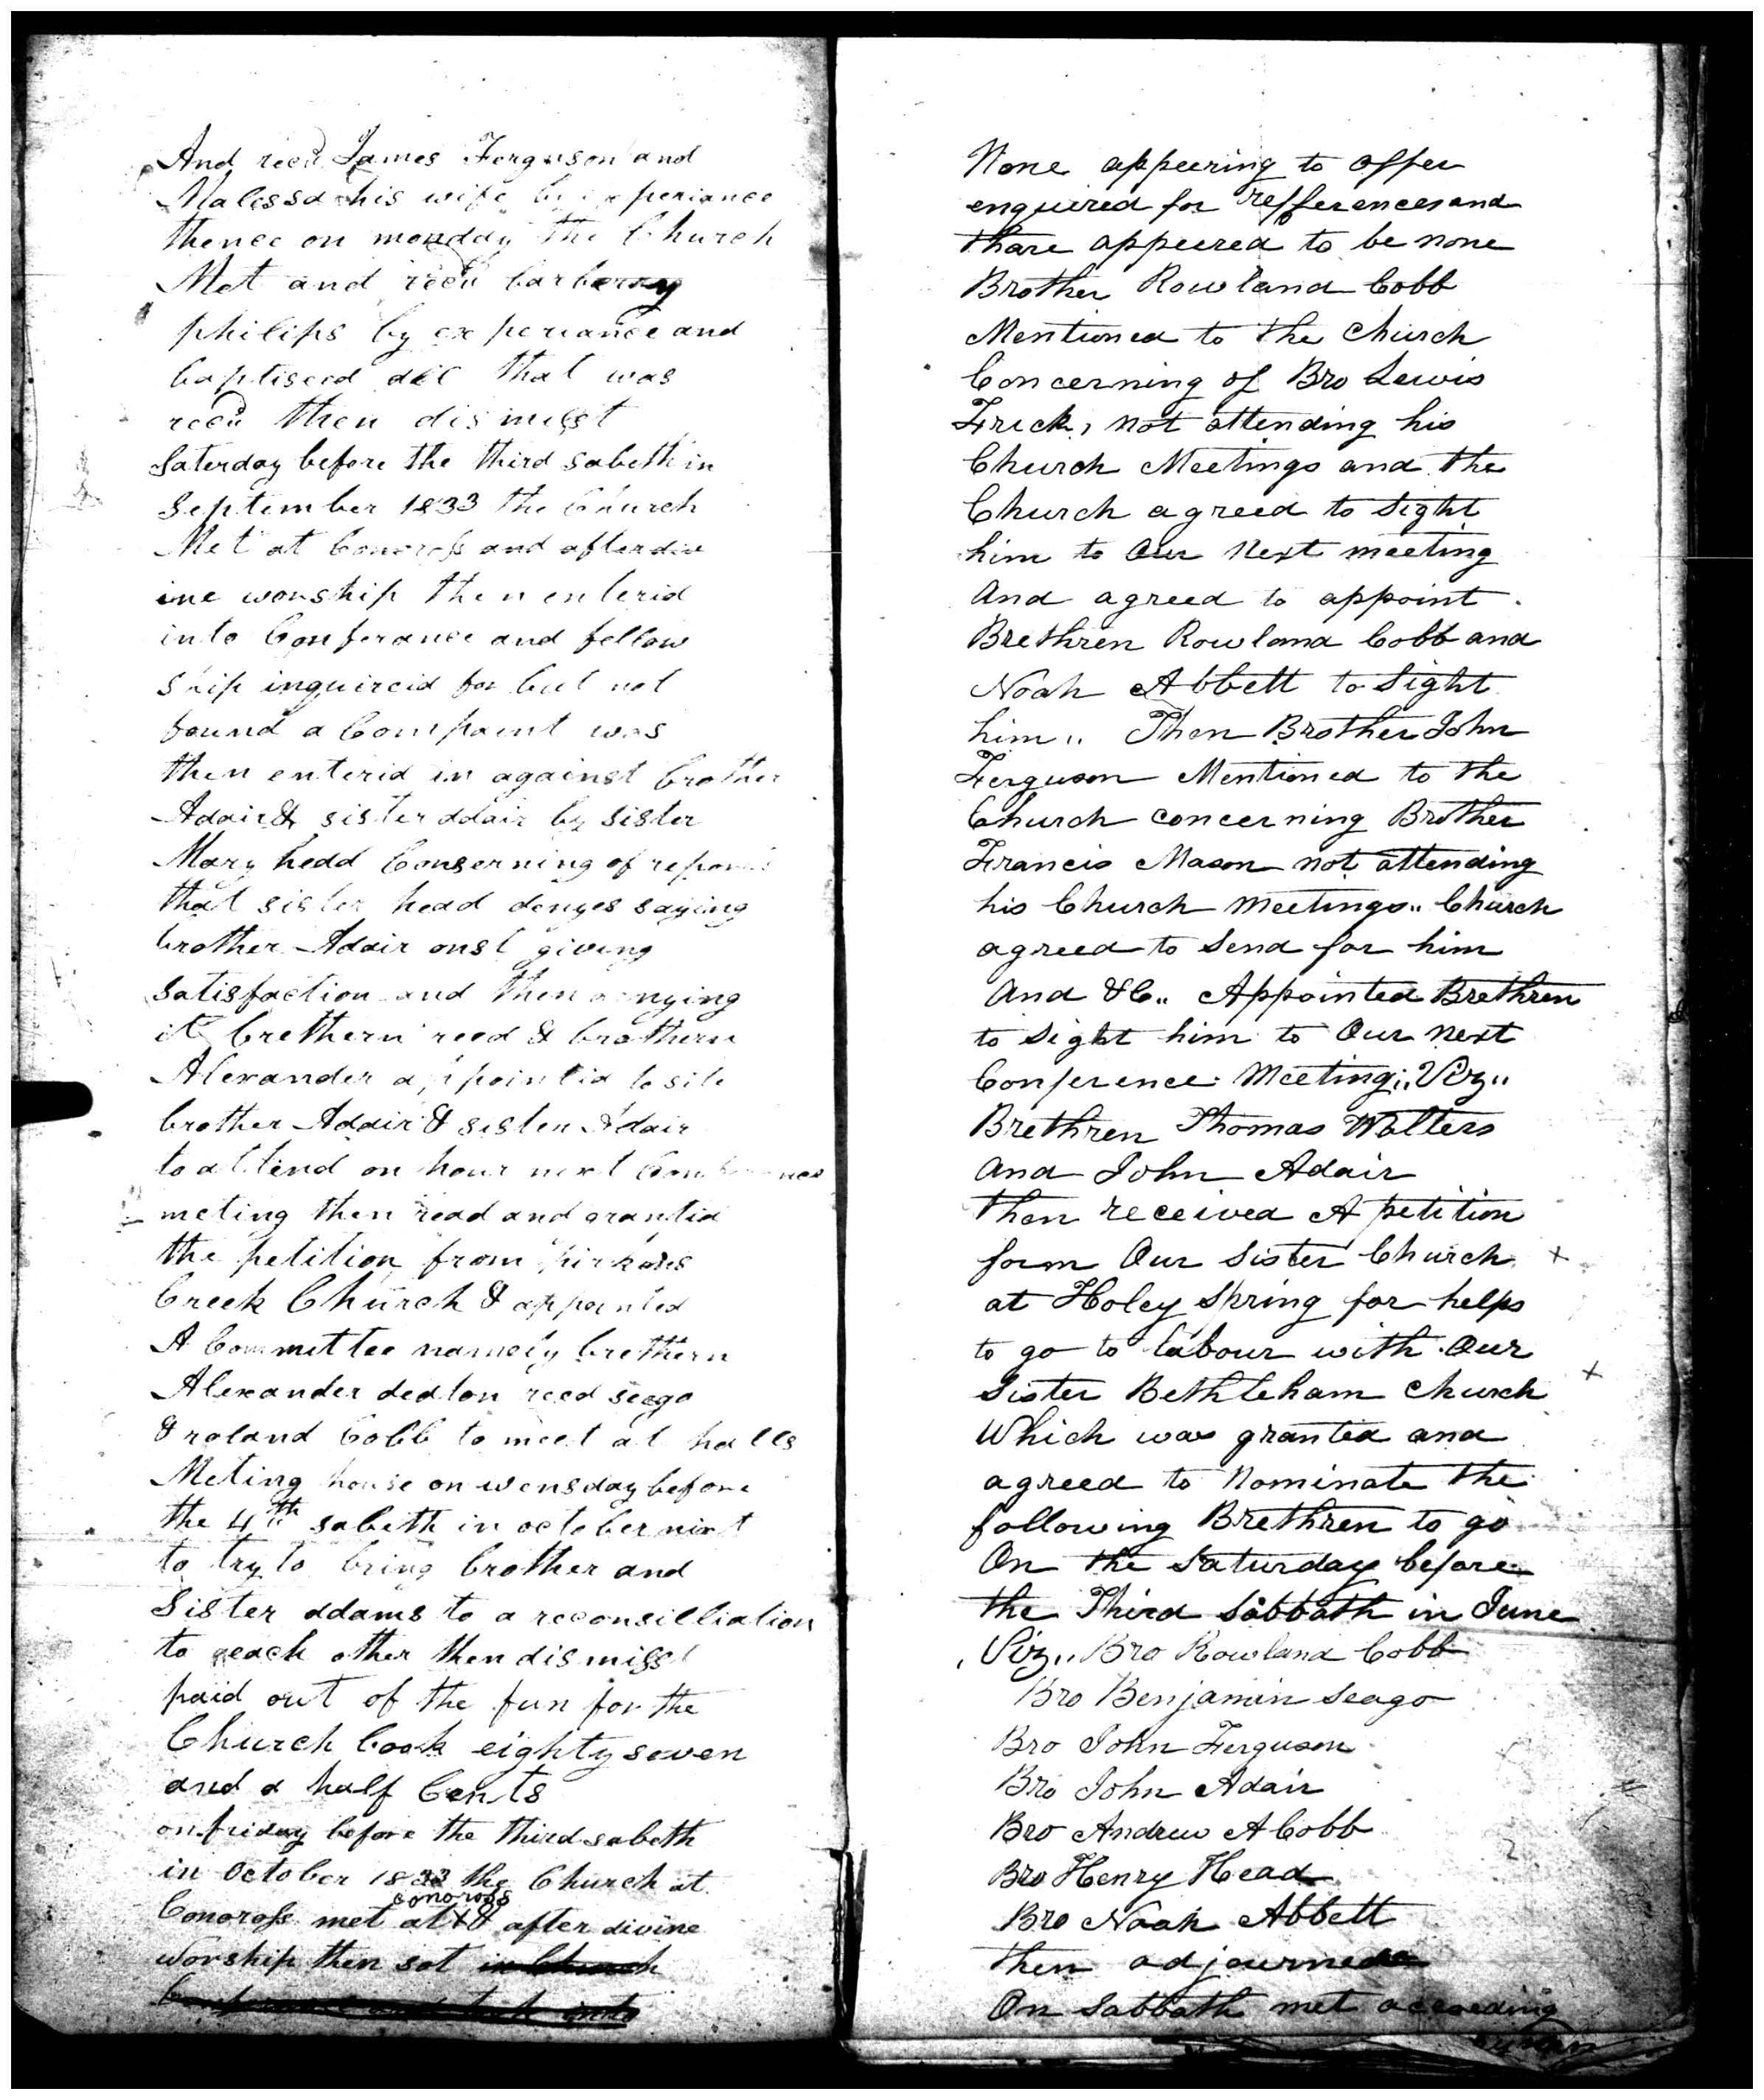 And recd James Ferguson and
Malessa his wife by experiance
thence on monday the Church
Met and recd barberry
philips by experiance and
baptiseed all that was
recd then dismisst
Saterday before the third sabeth in
September 1833 the Church
Met at Conoross and after div
ine worship then enterid
into Conferance and fellow
ship inquireid for but not
found a Compaint was
then enterid in against brother
Adair & sister Adair by sister
Mary hedd Conserning of reports
that sister head denyes saying
brother Adair onst giving
satisfaction and then denying
it brethern reed & brothern
Alexander appointid to site
brother Adair & sister Adair
to attend on hour next Conferance
meting then read and grantid
the petition from
Creek Church & appointed
A Committee namely brethern
Alexander dedton reed seego
& roland Cobb to meet at halls
Meting house on wensday before
the 4th sabeth in october nixt
to try to bring brother and
Sister addams to a reconsilliation
to each other then dismisst
paid out of the fun for the
Church book eighty seven
and a half Cents
on friday before the third sabeth
in October 1833 the Church at
Conoross met at Conoross & after divine
worship then sot in Church
None appeering to offer
enquired for refferences and
thare appeered to be none
Brother Rowland Cobb
Mentioned to the Church
Concerning of Bro Lewis
Frick, not attending his
Church Meetings and the
Church agreed to Sight
him to Our Next meeting
And agreed to appoint
Brethren Rowland Cobb and
Noah Abbett to Sight
him„ Then Brother John
Ferguson Mentioned to the
Church concerning Brother
Francis Mason not attending
his Church Meetings„ Church
agreed to Send for him
And &C„ Appointed Brethren
to Sight him to Our Next
Conference Meeting„ Viz„
Brethren Thomas Walters
And John Adair
Then received A petition
form Our Sister Church
at Holey Spring for helps
to go to labour with Our
Sister Bethleham Church
Which was granted and
agreed to Nominate the
following Brethren to go
On the Saturday before
the Third Sabbath in June
Viz„ Bro Rowland Cobb
Bro Benjamin Seago
Bro John Ferguson
Bro John Adair
Bro Andrew A Cobb
Bro Henry Head
Bro Noah Abbett
Then adjourned
On Sabbath met according